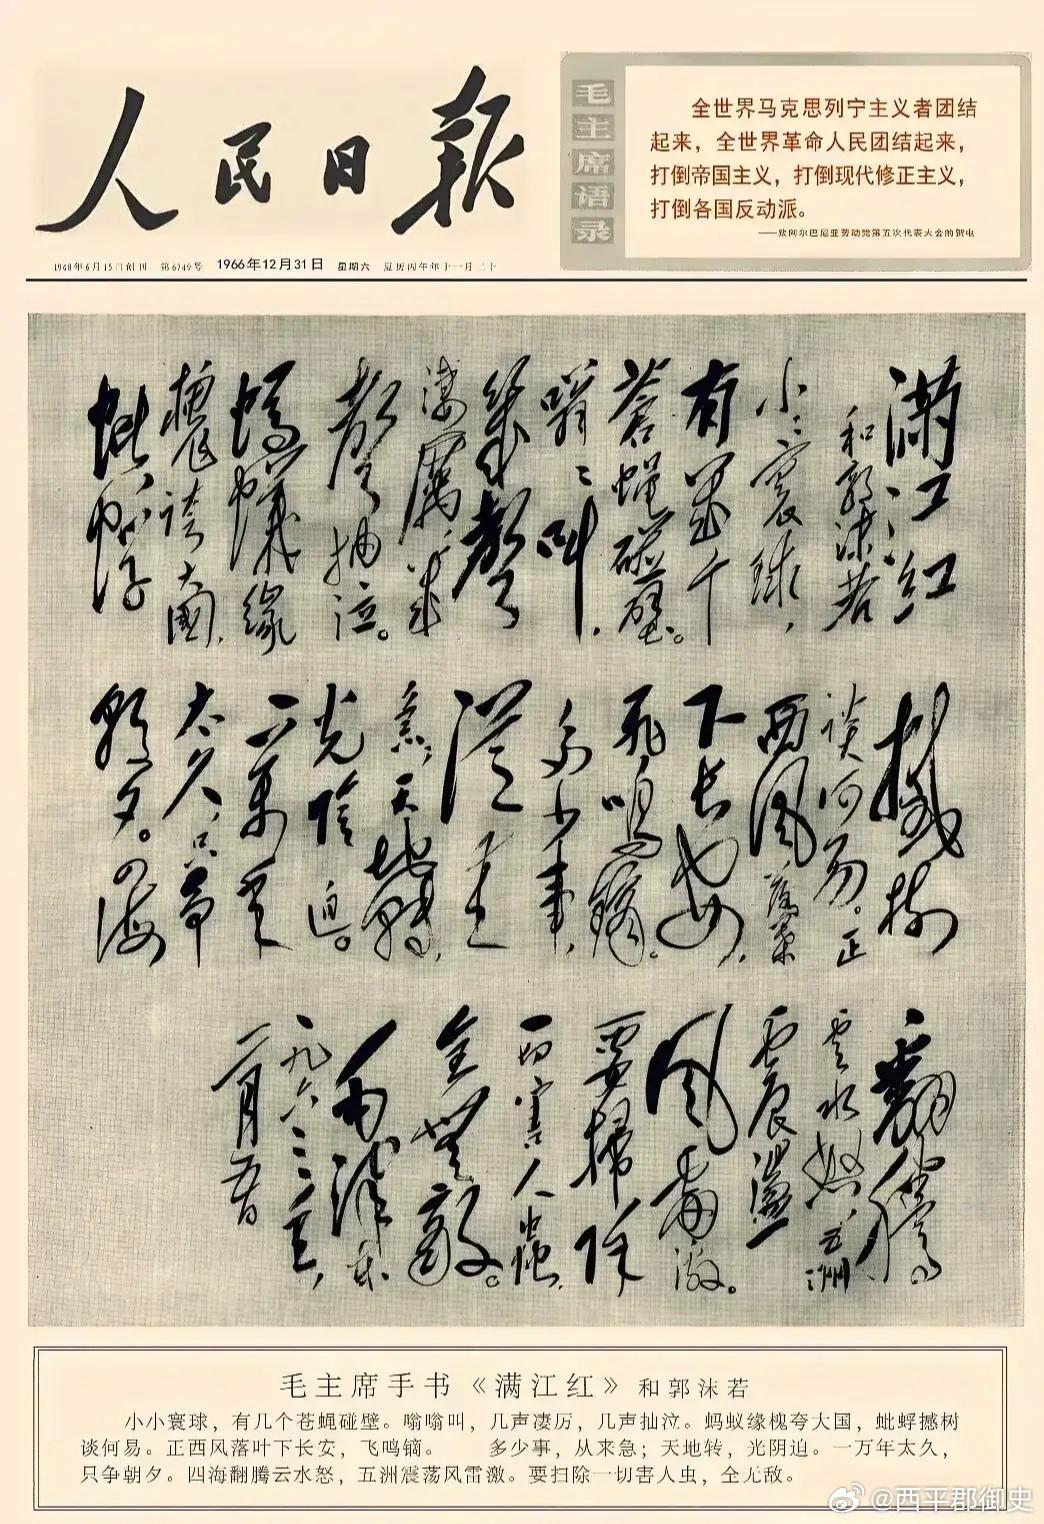 人民日报
1948年6月15日创刊 第6749号 1966年12月31日 星期六 夏历丙午年十一月二十
毛主席语录
全世界马克思列宁主义者团结
起来，全世界革命人民团结起来，
打倒帝国主义，打倒现代修正主义，
打倒各国反动派。
——致阿尔巴尼亚劳动党第五次代表大会的贺电
满江红
和郭沫若
小〻寰球，
有幾个
蒼蝇碰壁。
嗡〻叫，
幾聲
凄厲，幾
聲抽泣。
螞蟻緣
槐誇大國，
蚍蜉
撼樹
談何易。正
西風落葉
下長安，
飛鳴鏑。
多少事，
從来
急；天地轉，
光陰迫。
一萬年
太久，只争
朝夕。四海
翻騰
雲水怒，五洲
震盪
風雷激。
要掃除
一切害人蟲，
全無敵。
毛泽东
一九六三年，
二月五日
毛主席手书《满江红》和郭沫若
小小寰球，有几个苍蝇碰壁。嗡嗡叫，几声凄厉，几声抽泣。蚂蚁缘槐夸大国，蚍蜉撼树
谈何易。正西风落叶下长安，飞鸣镝。 多少事，从来急；天地转，光阴迫。一万年太久，
只争朝夕。四海翻腾云水怒，五洲震荡风雷激。要扫除一切害人虫，全无敌。
@西平郡御史